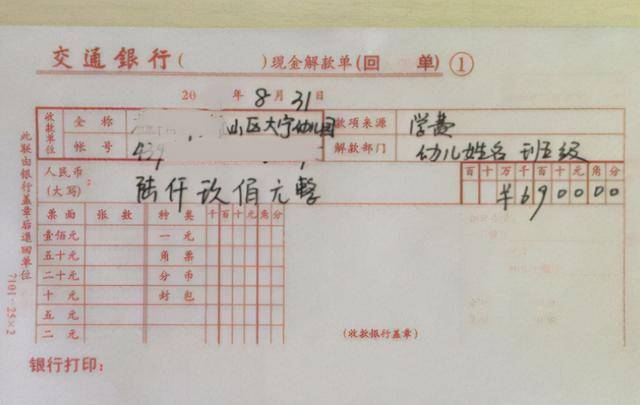 交通銀行( )现金解款单(回 单) ①
20 年 8 月 31 日
收款单位 全称 山区大宁幼儿园 款项来源 学费
帐号 439 解款部门 幼儿姓名 班级
人民币(大写): 陆仟玖佰元整 百十万千百十元角分 ¥690000
票面 张数 种类 千百十元角分
壹佰元 一元
五十元 角票
二十元 分币
十元 封包
五元
二元
(收款银行盖章)
银行打印:
此联由银行盖章后退回单位
7101·25×2